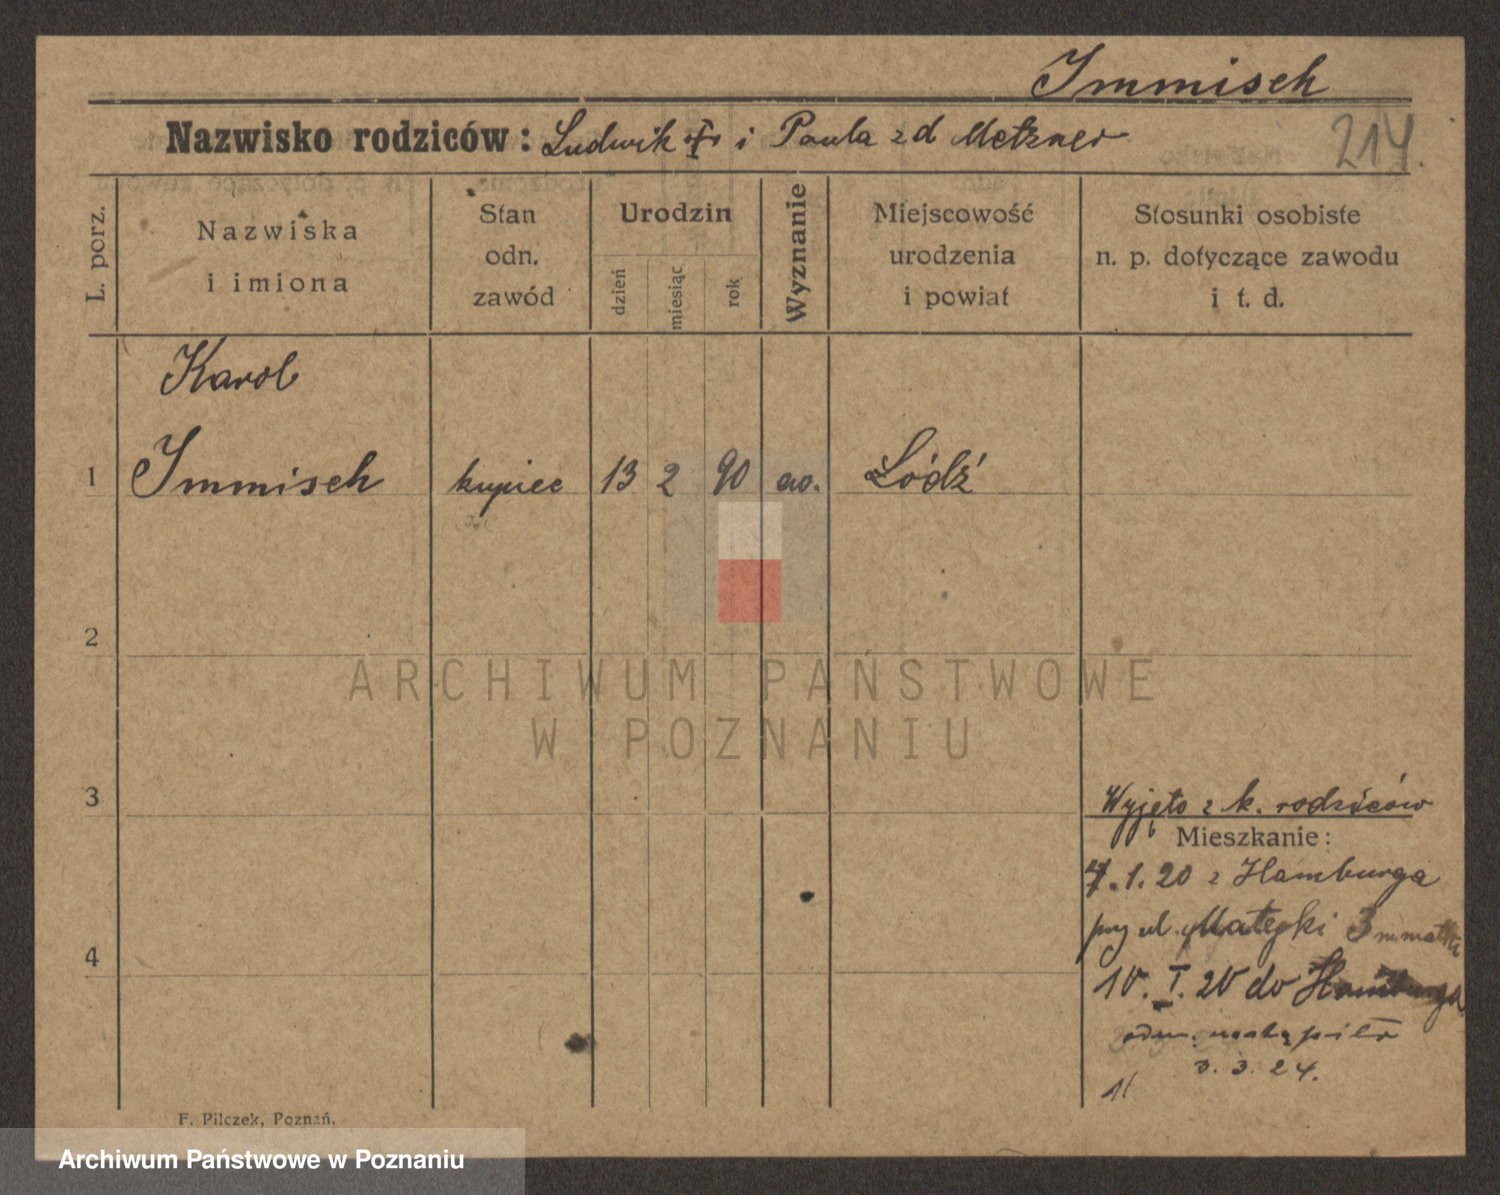 Immisch
Nazwisko rodziców: Ludwik + i Paula zd Metzner
214.
L. porz.
Nazwiska
i imiona
Stan
odn.
zawód
Urodzin
dzień
miesiąc
rok
Wyznanie
Miejscowość
urodzenia
i powiat
Stosunki osobiste
n. p. dotyczące zawodu
i t. d.
Karol
1 Immisch kupiec 13 2 90 Łódź
2
3
4
Wyjęto z k. rodziców
Mieszkanie:
7.1.20 z Hamburga
przy ul. Matejki 3
10. I. 20 do Hamburga
3. 3. 24.
F. Pilczek, Poznań.
ARCHIWUM PAŃSTWOWE
W POZNANIU
Archiwum Państwowe w Poznaniu